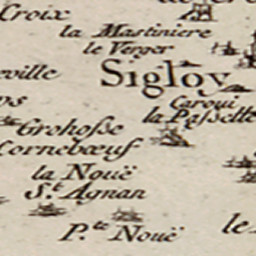 Croix
la Mastiniere
le Verger
eville
Sigloy
Caroui
la Passelle
Grohosse
Cornebœuf
la Nouë
S.t Agnan
P.te Nouë
le